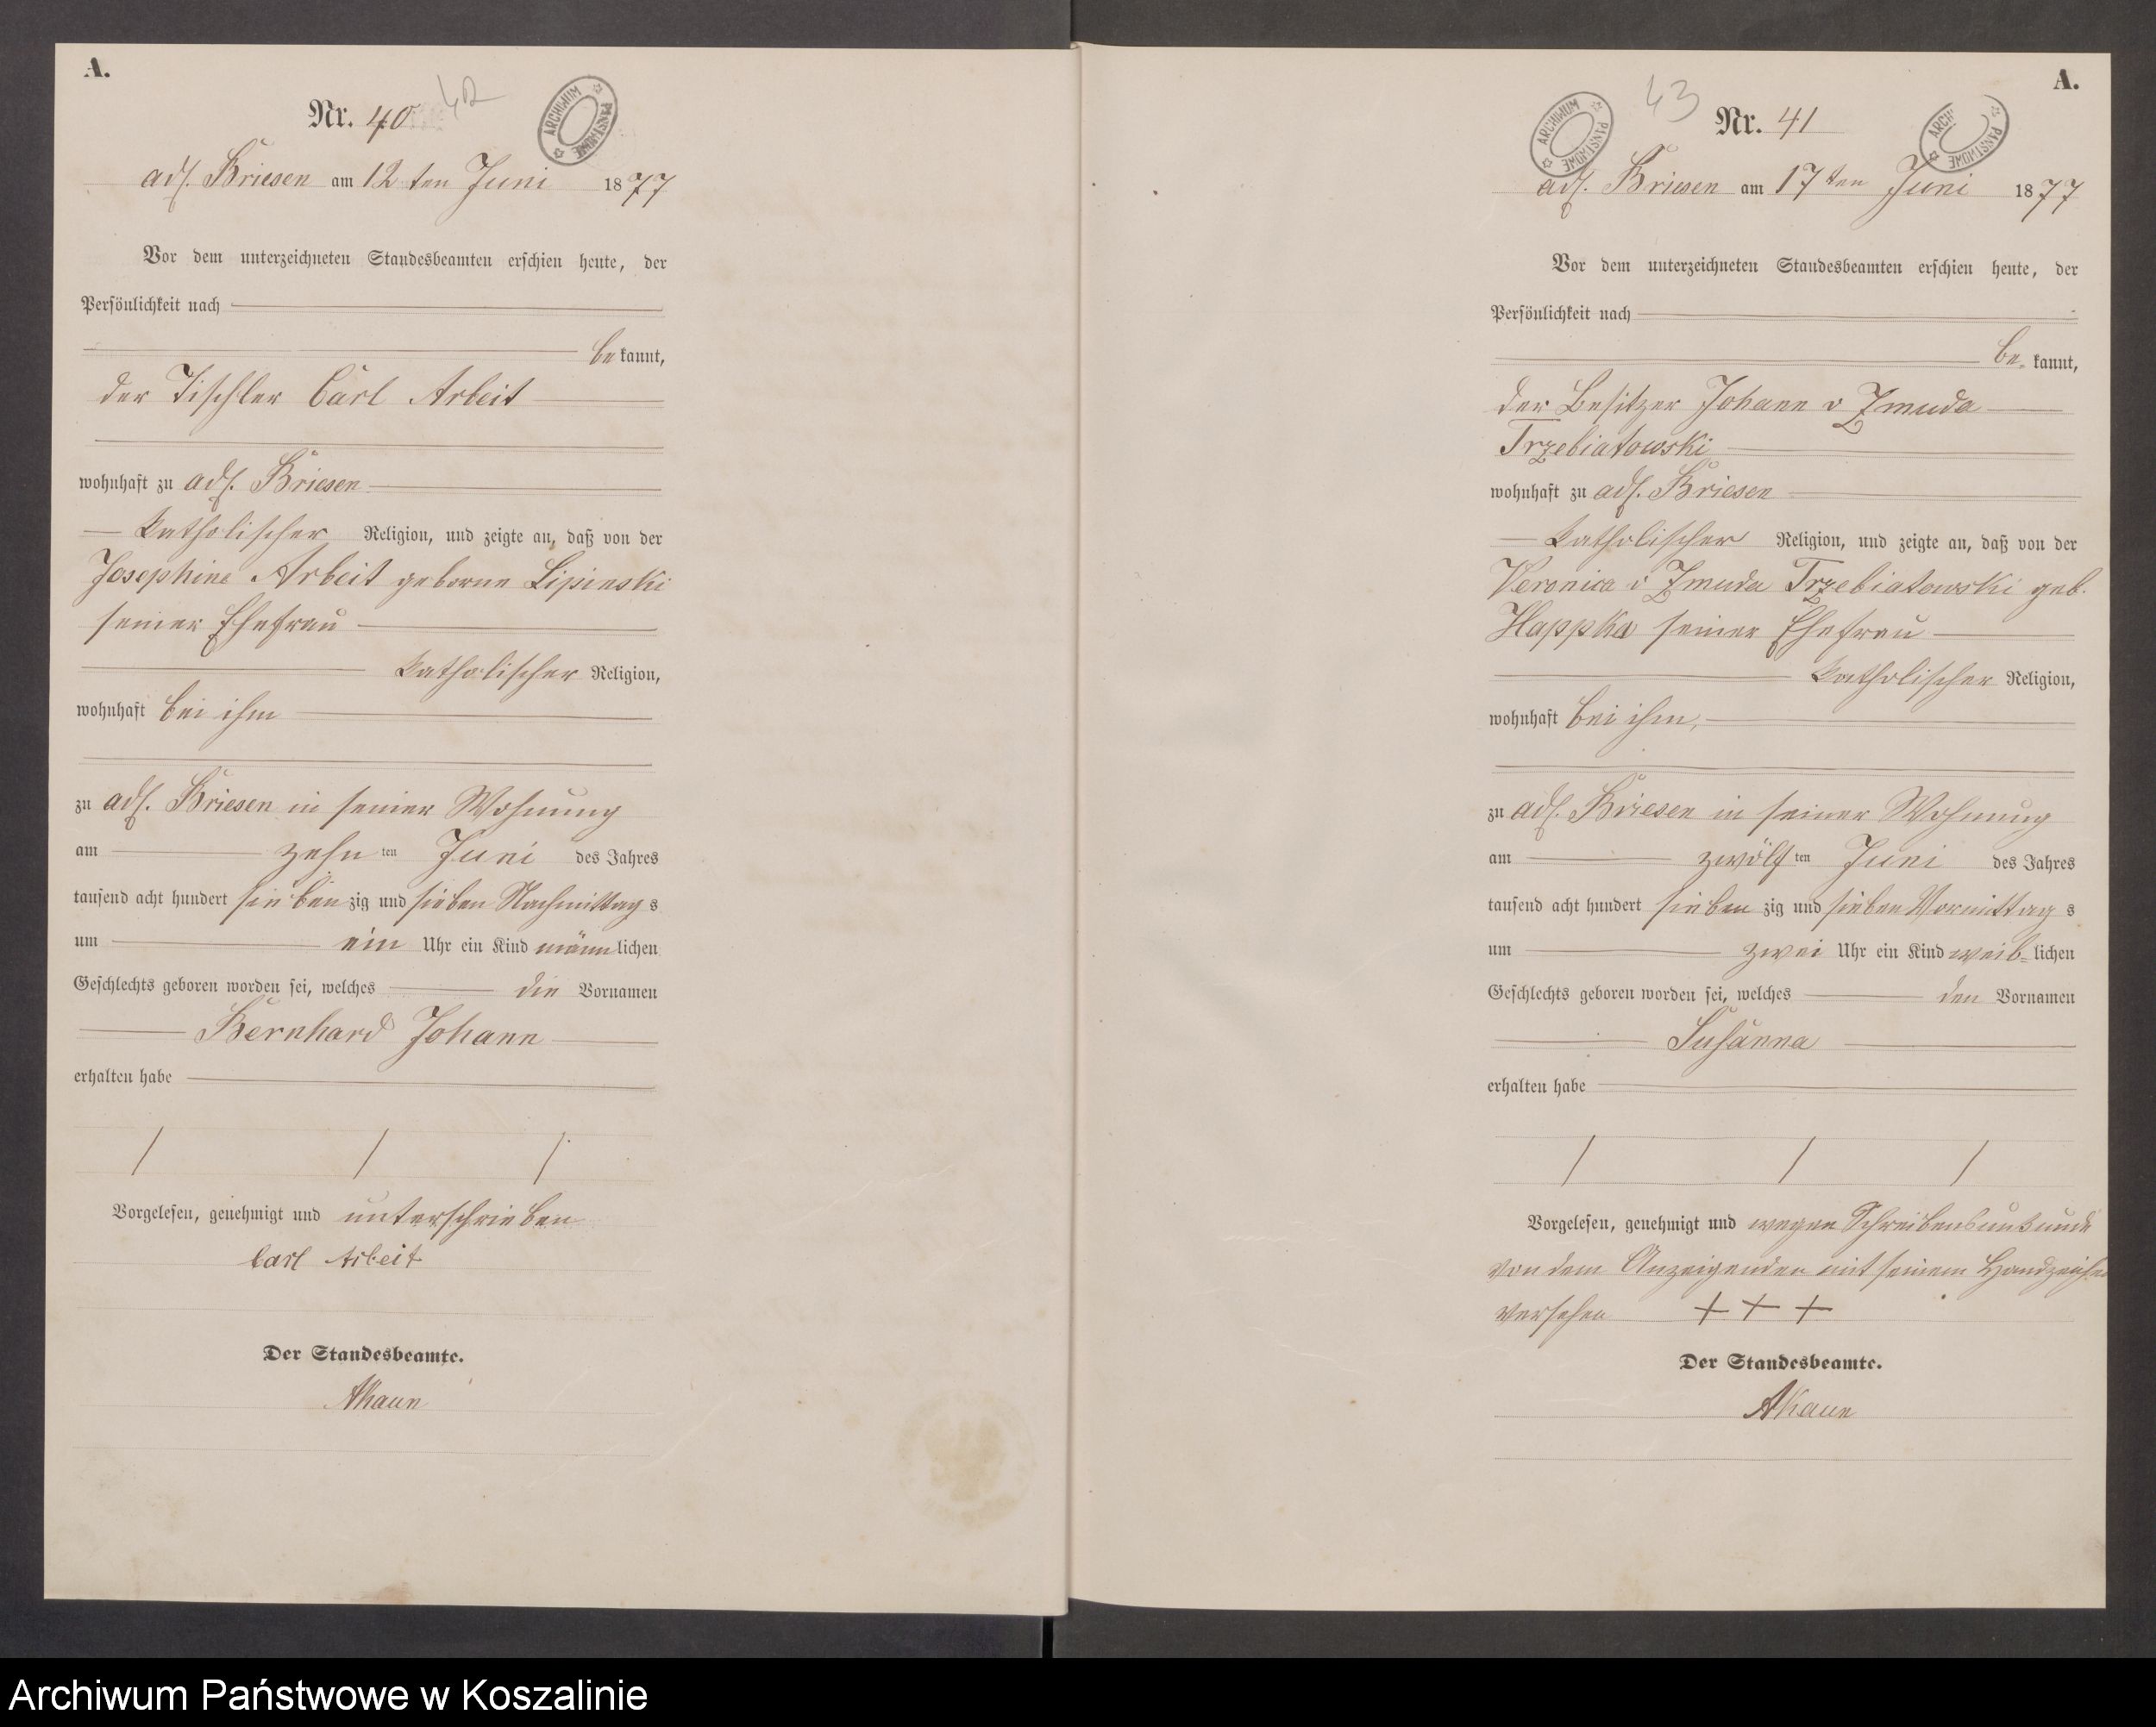 A.
Nr. 40
42
ARCHIWUM PAŃSTWOWE
adl. Briesen am 12ten Juni 1877
Vor dem unterzeichneten Standesbeamten erschien heute, der
Persönlichkeit nach
bekannt,
der Tischler Carl Arbeit
wohnhaft zu adl. Briesen
katholischer Religion, und zeigte an, daß von der
Josephine Arbeit geborne Lipinski
seiner Ehefrau
katholischer Religion,
wohnhaft bei ihm
zu adl. Briesen in seiner Wohnung
am zehn ten Juni des Jahres
tausend acht hundert sieben zig und sieben Nachmittag s
um ein Uhr ein Kind männlichen
Geschlechts geboren worden sei, welches die Vornamen
Bernhard Johann
erhalten habe
Vorgelesen, genehmigt und unterschrieben
Carl Arbeit
Der Standesbeamte.
A.
43
Nr. 41
ARCHIWUM PAŃSTWOWE
adl. Briesen am 17ten Juni 1877
Vor dem unterzeichneten Standesbeamten erschien heute, der
Persönlichkeit nach
be- kannt,
der Besitzer Johann v Zmuda
Trzebiatowski
wohnhaft zu adl. Briesen
katholischer Religion, und zeigte an, daß von der
Veronica v Zmuda Trzebiatowski geb.
Happka seiner Ehefrau
katholischer Religion,
wohnhaft bei ihm,
zu adl. Briesen in seiner Wohnung
am zwölf ten Juni des Jahres
tausend acht hundert sieben zig und sieben Vormittag s
um zwei Uhr ein Kind weib- lichen
Geschlechts geboren worden sei, welches den Vornamen
Susanna
erhalten habe
Vorgelesen, genehmigt und wegen Schreibensunkunde
von dem Anzeigenden mit seinem Handzeichen
versehen + + +
Der Standesbeamte.
Archiwum Państwowe w Koszalinie